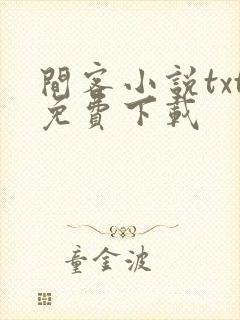 間客小說txt
免費下載
童金波